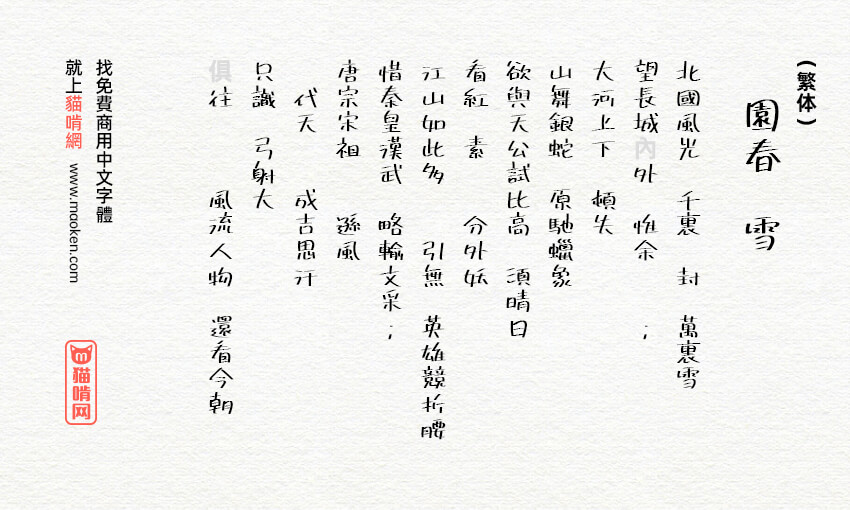 (繁体)
園春 雪
北國風光 千裏 封 萬裏雪
望長城內外 惟余 ；
大河上下 頓失
山舞銀蛇 原馳蠟象
欲與天公試比高 須晴日
看紅 素 分外妖
江山如此多 引無 英雄競折腰
惜秦皇漢武 略輸文采；
唐宗宋祖 遜風
代天 成吉思汗
只識 弓射大
俱往 風流人物 還看今朝
找免費商用中文字體
就上貓啃網 www.maoken.com
貓啃网